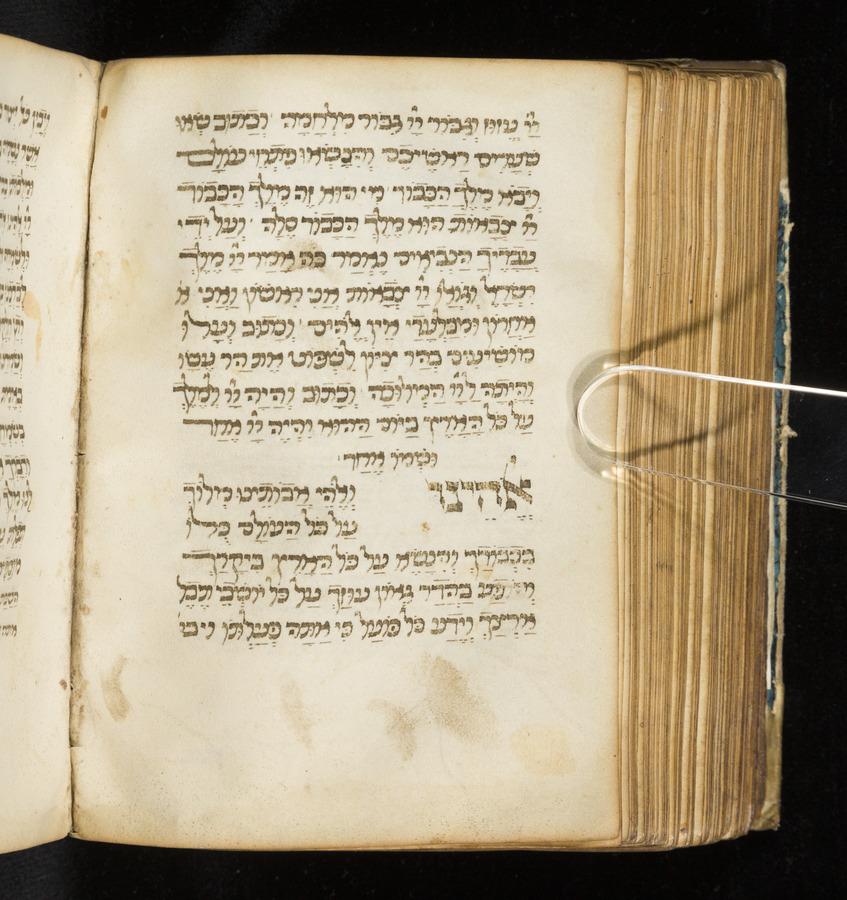 יי עזוז וגבור יי גבור מלחמה וכתוב שאו
שערים ראשיכם והנשאו פתחי עולם
ויבא מלך הכבוד מי הוא זה מלך הכבוד
יי צבאות הוא מלך הכבוד סלה ועל ידי
עבדיך הנביאים נאמר כה אמר יי מלך
ישראל וגואלו יי צבאות אני ראשון ואני א
אחרון ומבלעדי אין אלהים וכתוב ועלו
מושיעים בהר ציון לשפוט את הר עשו
והיתה ליי המלוכה וכתוב והיה יי למלך
על כל הארץ ביום ההוא יהיה יי אחד
ושמו אחד
אלהינו ואלהי אבותינו מלוך
על כל העולם כולו
בכבודך והנשא על כל הארץ ביקרך
והופע בהדר גאון עוזך על כל יושבי תבל
ארצך וידע כל פעול כי אתה פעלתו ויבי